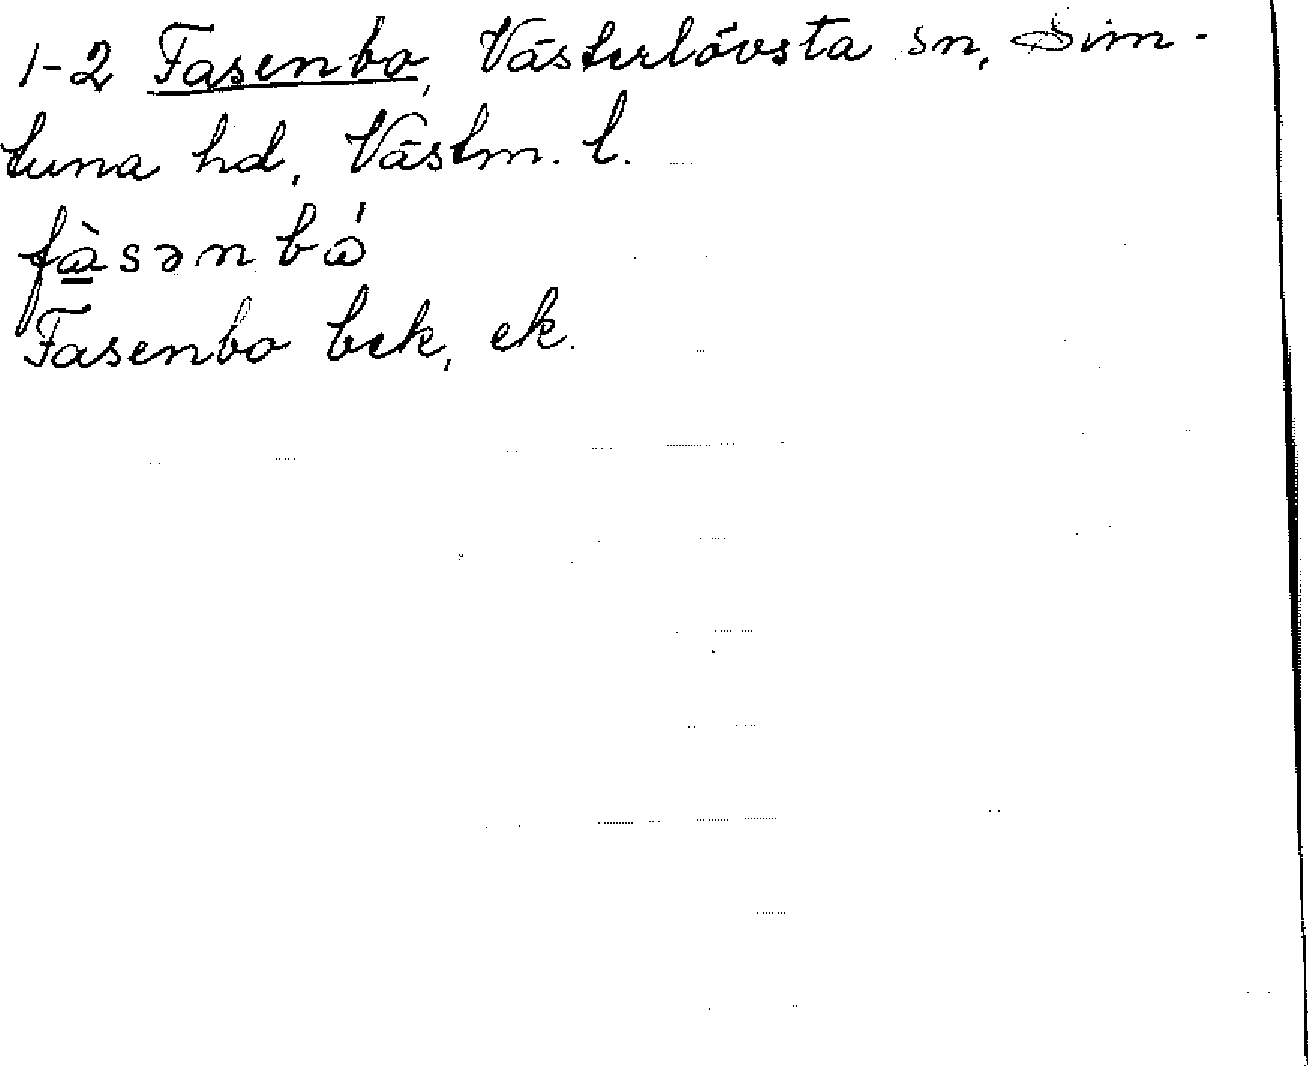 1-2 Fasenbo, Västerlövsta sn, Sim-
tuna hd, Västm. l.
fà̱sənbó
Fasenbo bek, ek.